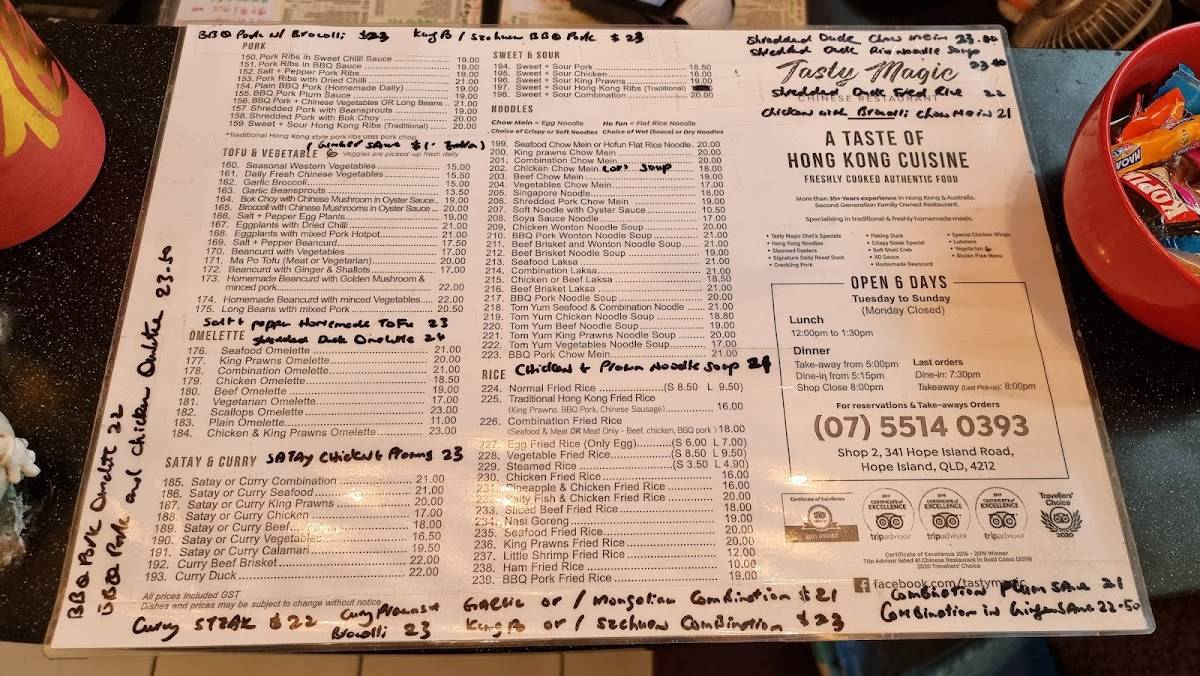 BBQ Pork w/ Brocolli $23
Kung Po / Szchuen BBQ Pork $23
PORK
150. Pork Ribs in Sweet Chilli Sauce 19.00
151. Pork Ribs in BBQ Sauce 19.00
152. Salt + Pepper Pork Ribs 19.00
153. Pork Ribs with Dried Chilli 21.00
154. Plain BBQ Pork (Homemade Daily) 19.00
155. BBQ Pork Plum Sauce 19.00
156. BBQ Pork + Chinese Vegetables OR Long Beans 21.00
157 Shredded Pork with Beansprouts 19.00
158 Shredded Pork with Bok Choy 20.00
159 Sweet + Sour Hong Kong Ribs (Traditional) 20.00
*Traditional Hong Kong style pork ribs uses pork chop
(Ginger Sauce $1 Extra)
TOFU & VEGETABLE Veggies are picked-up fresh daily
160. Seasonal Western Vegetables 15.00
161. Daily Fresh Chinese Vegetables 15.50
162. Garlic Broccoli 15.00
163. Garlic Beansprouts 13.50
164. Bok Choy with Chinese Mushroom in Oyster Sauce 19.00
165. Broccoli with Chinese Mushrooms in Oyster Sauce 20.00
166. Salt + Pepper Egg Plants 19.00
167. Eggplants with Dried Chilli 21.00
168. Eggplants with mixed Pork Hotpot 21.00
169. Salt + Pepper Beancurd 17.50
170. Beancurd with Vegetables 17.00
171. Ma Po Tofu (Meat or Vegetarian) 20.00
172. Beancurd with Ginger & Shallots 17.00
173. Homemade Beancurd with Golden Mushroom &
minced pork 22.00
174. Homemade Beancurd with minced Vegetables 22.00
175. Long Beans with mixed Pork 20.50
Salt & pepper Homemade ToFu 23
OMELETTE
Shredded Duck Omelette 24
176. Seafood Omelette 21.00
177. King Prawns Omelette 20.00
178. Combination Omelette 21.00
179. Chicken Omelette 18.50
180. Beef Omelette 19.00
181. Vegetarian Omelette 17.00
182. Scallops Omelette 23.00
183. Plain Omelette 11.00
184. Chicken & King Prawns Omelette 23.00
SATAY & CURRY SATAY Chicken & Prawns 23
185. Satay or Curry Combination 21.00
186. Satay or Curry Seafood 21.00
187. Satay or Curry King Prawns 20.00
188. Satay or Curry Chicken 17.00
189. Satay or Curry Beef 18.00
190. Satay or Curry Vegetables 16.50
191. Satay or Curry Calamari 19.50
192. Curry Beef Brisket 22.00
193. Curry Duck 22.00
All prices included GST
Dishes and prices may be subject to change without notice
Curry STEAK $22
Curry Prawns &
Brocolli 23
BBQ Pork Omelette 22
BBQ Pork and chicken Omelette 23.50
SWEET & SOUR
194. Sweet + Sour Pork 18.50
195. Sweet + Sour Chicken 16.00
196. Sweet + Sour King Prawns 19.00
197. Sweet + Sour Hong Kong Ribs (Traditional)
198. Sweet + Sour Combination 20.00
NOODLES
Chow Mein = Egg Noodle Ho fun = Flat Rice Noodle
Choice of Crispy or Soft Noodles Choice of Wet (Sauce) or Dry Noodles
199. Seafood Chow Mein or Hofun Flat Rice Noodle 20.00
200. King prawns Chow Mein 20.00
201. Combination Chow Mein 20.00
202. Chicken Chow Mein Lor Soup 18.00
203. Beef Chow Mein 19.00
204. Vegetables Chow Mein 17.00
205. Singapore Noodle 18.00
206. Shredded Pork Chow Mein 19.00
207. Soft Noodle with Oyster Sauce 10.50
208. Soya Sauce Noodle 17.00
209. Chicken Wonton Noodle Soup 20.00
210. BBQ Pork Wonton Noodle Soup 21.00
211. Beef Brisket and Wonton Noodle Soup 21.00
212. Beef Brisket Noodle Soup 19.00
213. Seafood Laksa 21.00
214. Combination Laksa 21.00
215. Chicken or Beef Laksa 18.50
216. Beef Brisket Laksa 21.00
217. BBQ Pork Noodle Soup 20.00
218. Tom Yum Seafood & Combination Noodle 21.00
219. Tom Yum Chicken Noodle Soup 18.80
220. Tom Yum Beef Noodle Soup 19.00
221. Tom Yum King Prawns Noodle Soup 20.00
222. Tom Yum Vegetables Noodle Soup 17.00
223. BBQ Pork Chow Mein 21.00
RICE Chicken & Prawn Noodle Soup 24
224. Normal Fried Rice (S 8.50 L 9.50)
225. Traditional Hong Kong Fried Rice
(King Prawns, BBQ Pork, Chinese Sausage) 16.00
226. Combination Fried Rice
(Seafood & Meat OR Meat Only - Beef, chicken, BBQ pork) 18.00
227. Egg Fried Rice (Only Egg) (S 6.00 L 7.00)
228. Vegetable Fried Rice (S 8.50 L 9.50)
229. Steamed Rice (S 3.50 L 4.90)
230. Chicken Fried Rice 16.00
231. Pineapple & Chicken Fried Rice 16.00
Salty Fish & Chicken Fried Rice 20.00
233. Sliced Beef Fried Rice 18.00
234. Nasi Goreng 19.00
235. Seafood Fried Rice 20.00
236. King Prawns Fried Rice 20.00
237. Little Shrimp Fried Rice 12.00
238. Ham Fried Rice 10.00
239. BBQ Pork Fried Rice 19.00
GARLIC or / Mongolian Combination $21
Kung Po or / Szchuen Combination $23
Shredded Duck Chow Mein 23.80
Shredded Duck Rice Noodle Soup
Tasty Magic
CHINESE RESTAURANT
Shredded Duck Fried Rice 22
Chicken with Brocolli Chow Mein 21
A TASTE OF
HONG KONG CUISINE
FRESHLY COOKED AUTHENTIC FOOD
More than 35+ Years experience in Hong Kong & Australia.
Second Generation Family Owned Restaurant.
Specialising in traditional & freshly homemade meals.
• Tasty Magic Chef's Specials
• Hong Kong Noodles
• Steamed Oysters
• Signature Daily Roast Duck
• Crackling Pork
• Peking Duck
• Crispy Steak Special
• Soft Shell Crab
• XO Sauce
• Homemade Beancurd
• Special Chicken Wings
• Lobsters
• Vegetarian
• Gluten Free Menu
OPEN 6 DAYS
Tuesday to Sunday
(Monday Closed)
Lunch
12:00pm to 1:30pm
Dinner
Take-away from 5:00pm
Dine-in from 5:15pm
Shop Close 8:00pm
Last orders
Dine-in: 7:30pm
Takeaway (Last Pick-up): 8:00pm
For reservations & Take-aways Orders
(07) 5514 0393
Shop 2, 341 Hope Island Road,
Hope Island, QLD, 4212
Certificate of Excellence
tripadvisor
tripadvisor
tripadvisor
Travellers' Choice
2020
Certificate of Excellence 2016 - 2019 Winner
Trip Advisor listed #1 Chinese Restaurant in Gold Coast (2019)
2020 Travellers' Choice
facebook.com/tastym
Combination Plum Sauce 21
Combination in Ginger Sauce 22.50